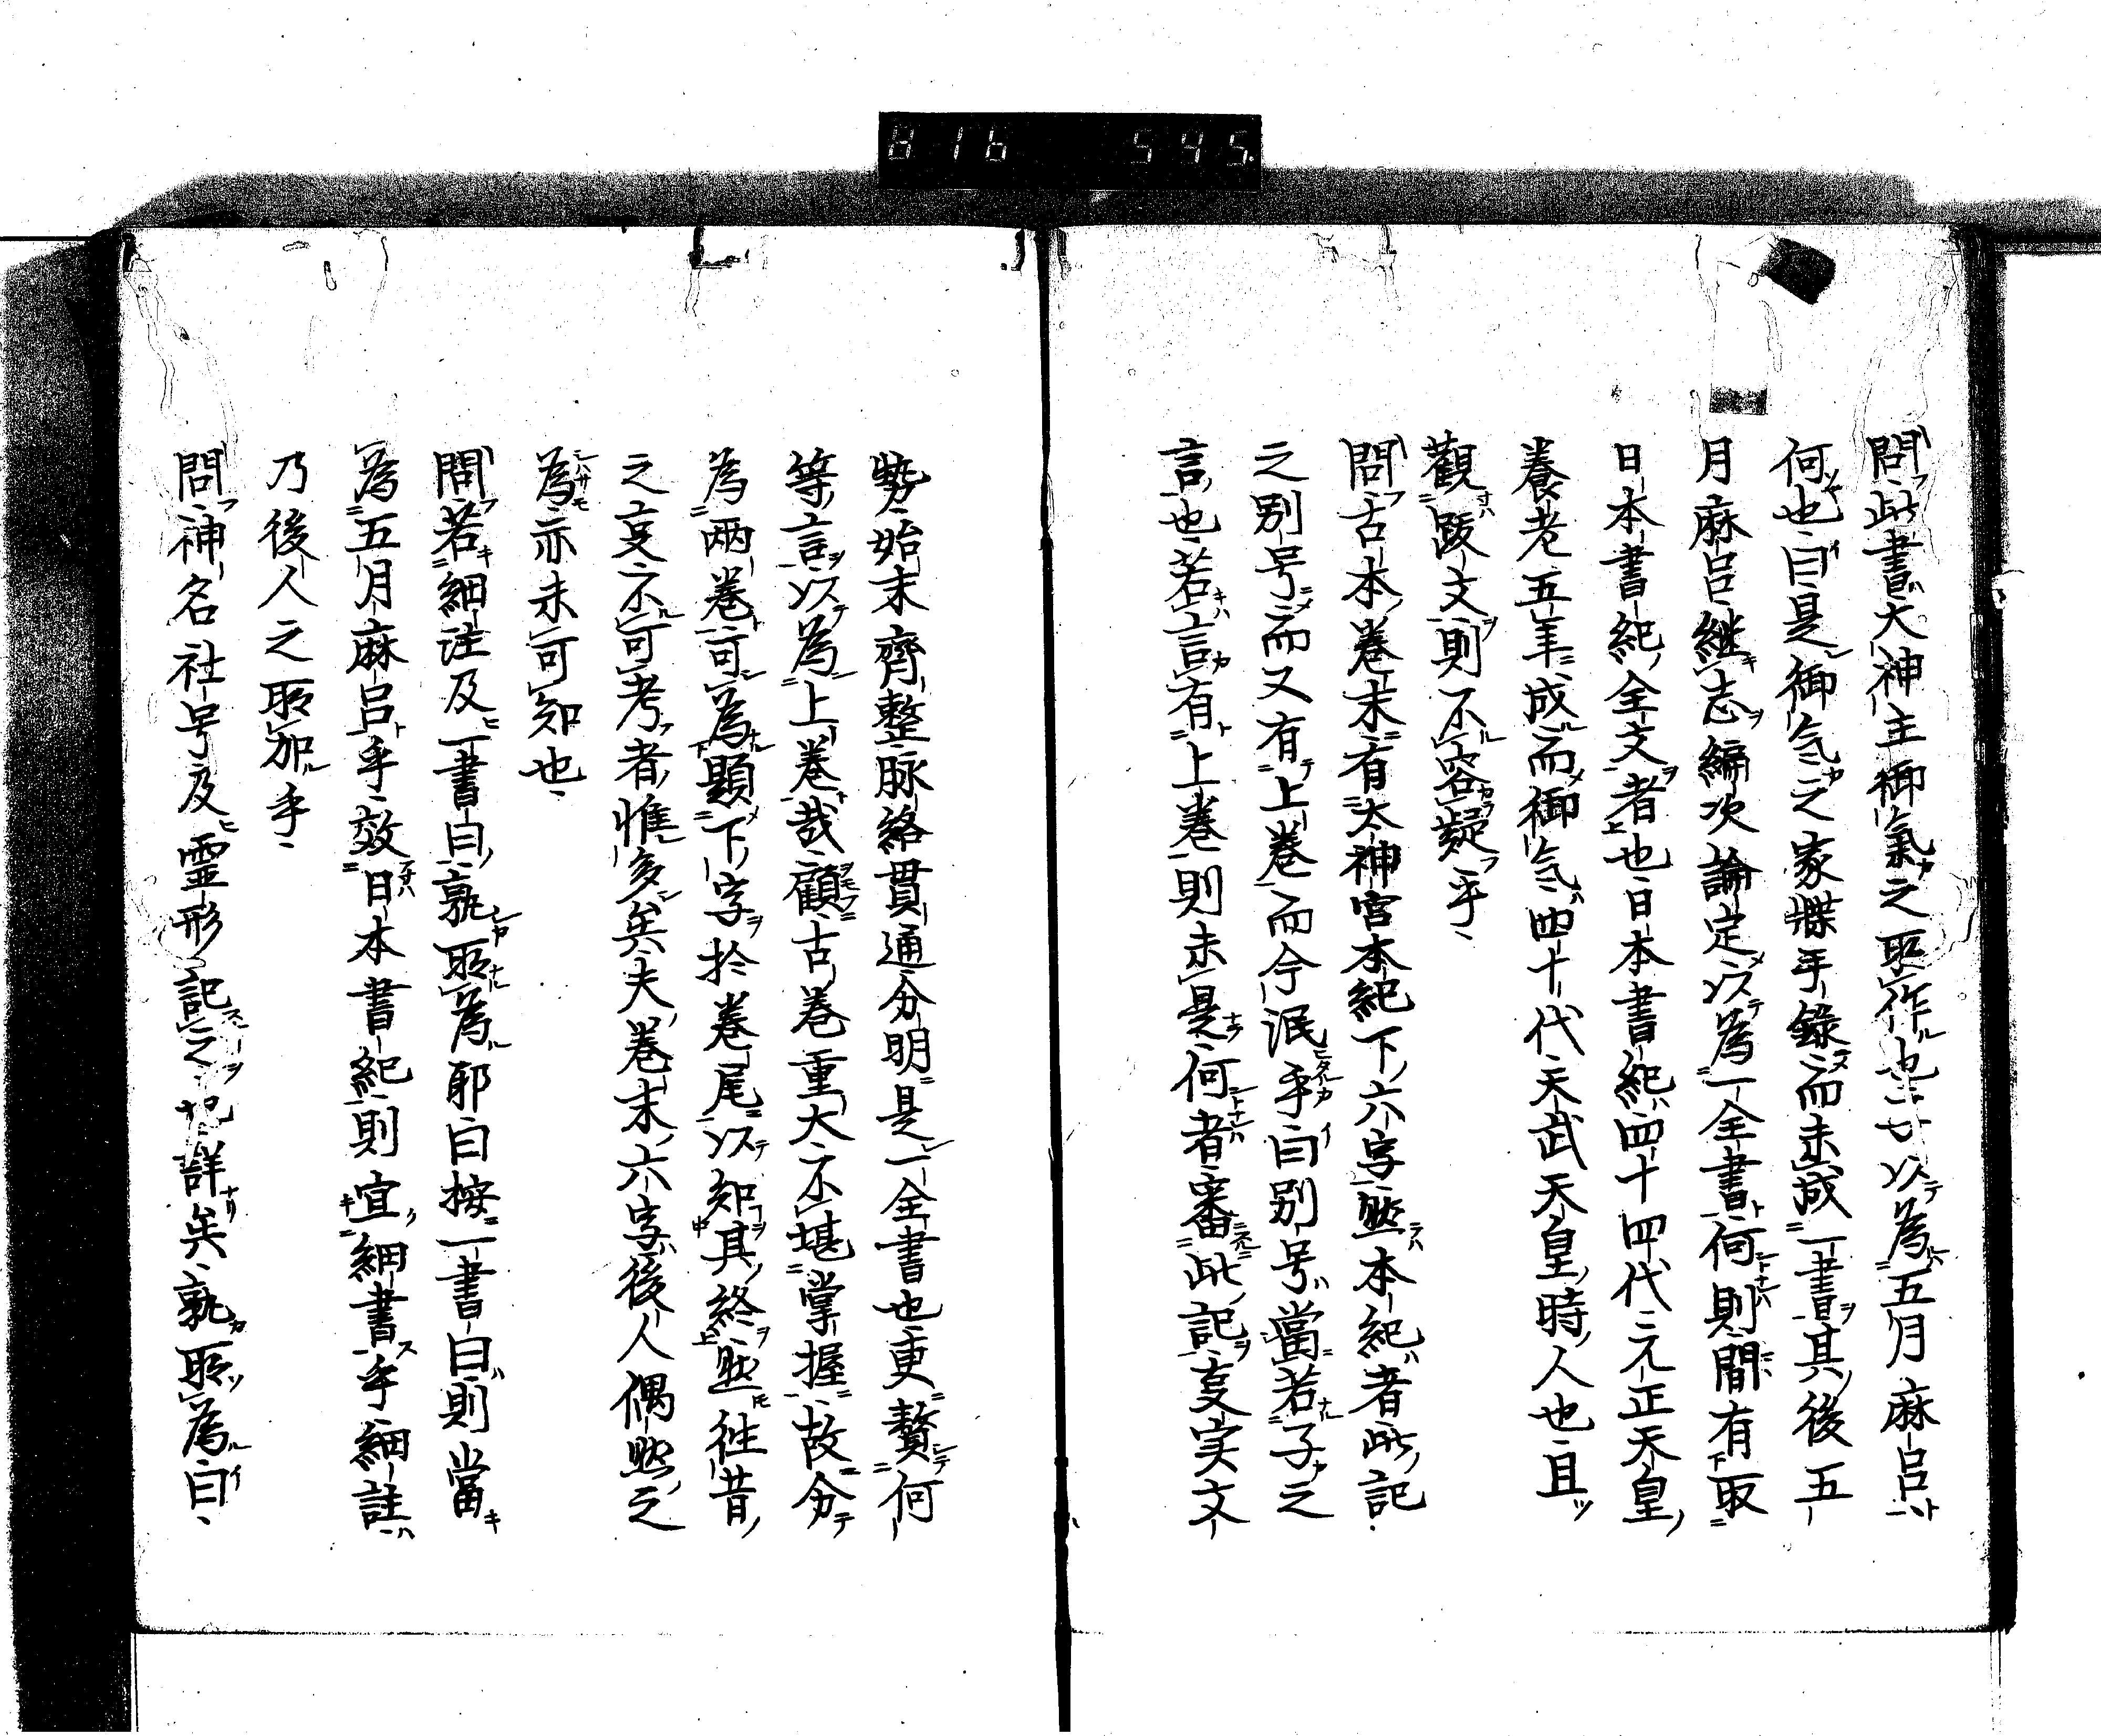 816 545.
問此書大神主御氣之所作也 以為五月麻呂
何也曰是御气之家牒手錄而未成一書其後五
月麻呂継志編次論定以為一全書何則間有取
日本書紀全文者也日本書紀四十四代元正天皇
養老五年成而御气四十代天武天皇時人也且
觀跋文則不容疑乎
問古本巻末有太神宮本紀下六字然本紀者此記
之别号而又有上巻而今泯乎曰别号當若子之
言也若言有上巻則未是何者審此記叓実文
勢始末齊整脉絡貫通分明是一全書也更贅何
等言以為上巻哉顧古巻重大不堪掌握故分
為两巻可為顕下字於巻尾以知其終然徃昔
之叓不可考者惟多矣夫巻末六字後人偶然之
為亦未可知也
問若細注及一書曰孰所為耶曰按一書曰則當
為五月麻呂乎效日本書紀則宜細書乎細註
乃後人之所加乎
問神名社号及霊形記之 詳矣孰所為曰